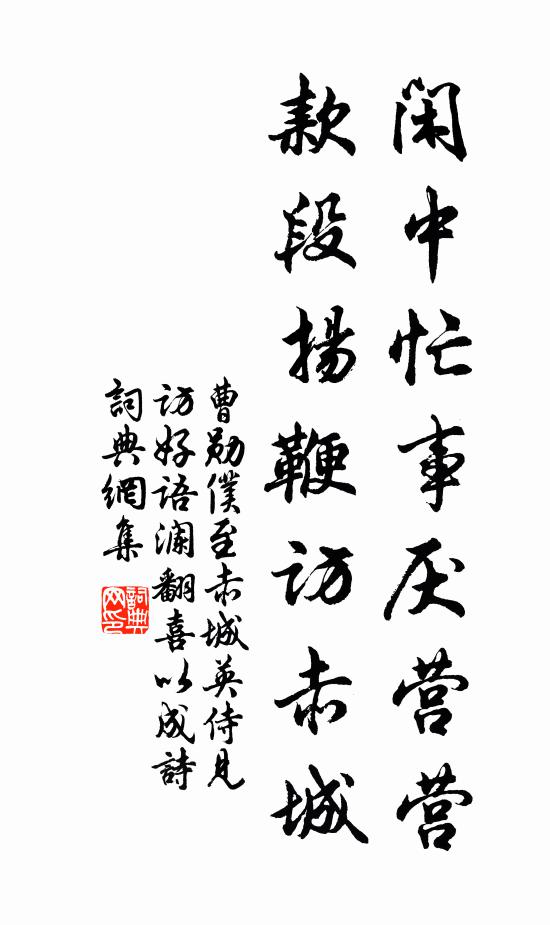 闲中忙事厌营营
款段揚鞭访赤城
曹勛僕至赤城英侍見
访好语澜翻喜以成詩
詞典網集
詞典网印